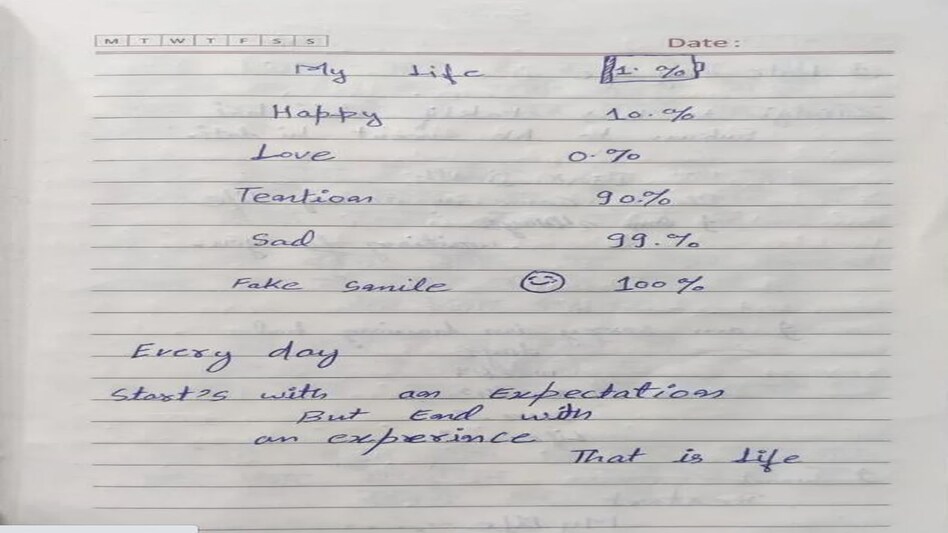 M T W T F S S
Date :
My life 1. %
Happy 10.%
Love 0.%
Teantion 90.%
Sad 99.%
Fake Smile 100%
Every day
Start's with an Expectation
But End with
an experince
That is life